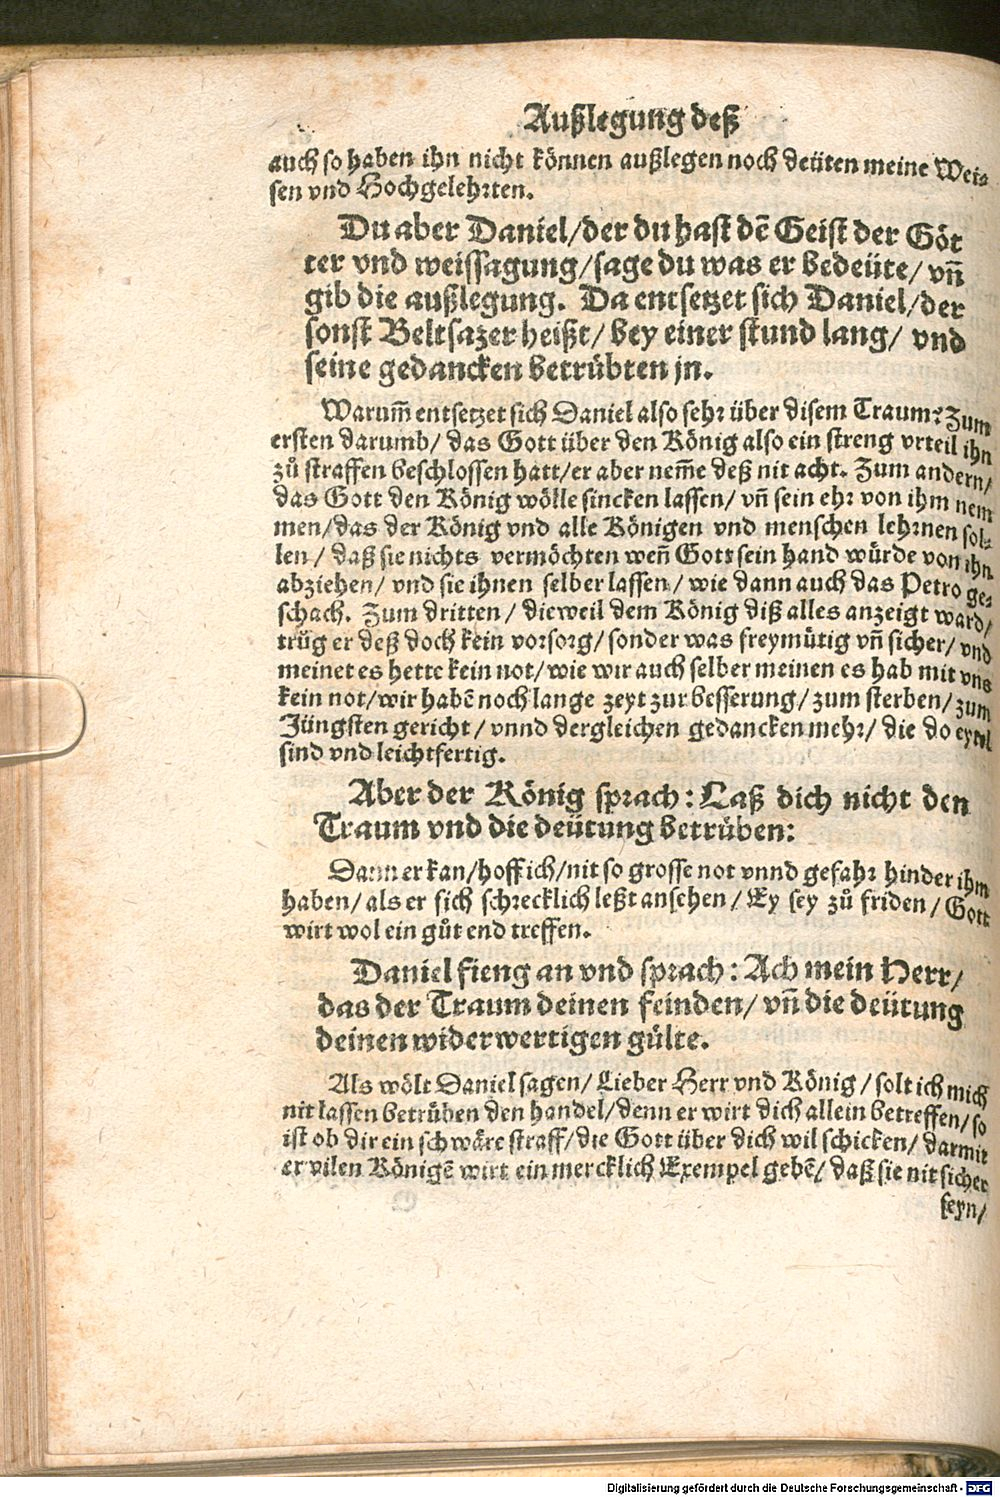 Außlegung deß
auch so haben ihn nicht können außlegen noch deüten meine Wei⸗
sen vnd Hochgelehrten.
Du aber Daniel/der du hast dē Geist der Göt
ter vnd weissagung/sage du was er bedeüte/ vñ
gib die außlegung. Da entsetzet sich Daniel/der
sonst Beltsazer heißt/ bey einer stund lang/ vnd
seine gedancken betrübten jn.
Warum̃ entsetzet sich Daniel also sehr über disem Traum? Zum
ersten darumb/ das Gott über den König also ein streng vrteil ihn
zů straffen beschlossen hatt/er aber nem̃e deß nit acht. Zum andern/
das Gott den König wölle sincken lassen/ vñ sein ehr von ihm nem
men/das der König vnd alle Königen vnd menschen lehrnen sol⸗
len/ daß sie nichts vermöchten weñ Gott sein hand würde von ihn
abziehen/ vnd sie ihnen selber lassen/ wie dann auch das Petro ge⸗
schach. Zum dritten/ dieweil dem König diß alles anzeigt ward/
trůg er deß doch kein vorsorg/ sonder was freymütig vñ sicher/ vnd
meinet es hette kein not/ wie wir auch selber meinen es hab mit vns
kein not/wir habē noch lange zeyt zur besserung/ zum sterben/ zum
Jüngsten gericht/ vnnd dergleichen gedancken mehr/ die do eytel
sind vnd leichtfertig.
Aber der König sprach: Laß dich nicht den
Traum vnd die deütung betrüben:
Dann er kan/hoff ich/nit so grosse not vnnd gefahr hinder ihm
haben/ als er sich schrecklich leßt ansehen/ Ey sey zů friden/ Gott
wirt wol ein gůt end treffen.
Daniel fieng an vnd sprach: Ach mein Herr/
das der Traum deinen feinden/ vñ die deütung
deinen widerwertigen gülte.
Als wölt Daniel sagen/ Lieber Herr vnd König/ solt ich mich
nit lassen betrüben den handel/denn er wirt dich allein betreffen/ so
ist ob dir ein schwäre straff/die Gott über dich wil schicken/ darmit
er vilen Königē wirt ein mercklich Exempel gebē/ daß sie nit sicher
seyn/
Digitalisierung gefördert durch die Deutsche Forschungsgemeinschaft - DFG